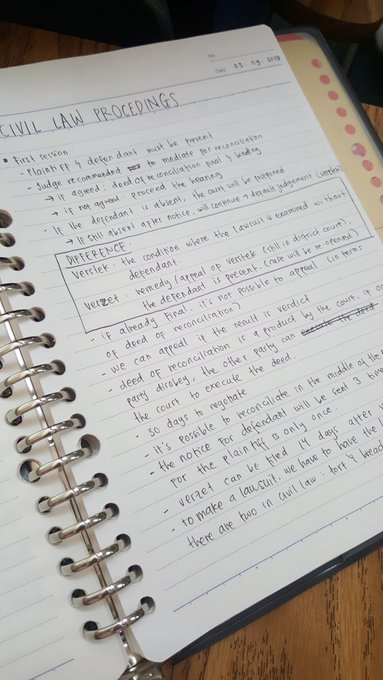 No.
Date 03.09.2019
CIVIL LAW PROCEDINGS
First session:
- Plaintiff & defendant must be present
- Judge recommended to mediate for reconciliation
→ if agreed: deed of reconciliation final & binding
→ if not agreed: proceed the hearing
- If the defendant is absent: the court will be postponed
→ if still absent after notice, will continue → default judgement (verstek)
DIFFERENCE:
verstek: the condition where the lawsuit is examined without
defendant.
verzet: remedy / appeal of verstek (still in district court).
the defendant is present. (case will be re-opened)
- if already final, it's not possible to appeal (in terms
of deed of reconciliation)
- we can appeal if the result is verdict
- deed of reconciliation is a product by the court. if on
party disobey, the other party can execute the deed
the court to execute the deed.
- 30 days to negotiate
- it's possible to reconciliate in the middle of the
- the notice for defendant will be sent 3 time
for the plaintiff is only once.
- verzet can be filed 14 days after
- to make a lawsuit, we have to have the
there are two in civil law: tort & breac